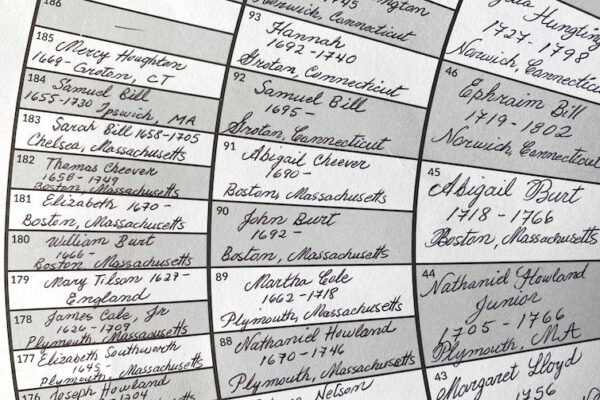 186
185
Mercy Houghton
1669- Groton, CT
184
Samuel Bill
1655-1730 Ipswich, MA
183
Sarah Bill 1658-1705
Chelsea, Massachusetts
182
Thomas Cheever
1658-1749
Boston, Massachusetts
181
Elizabeth 1670-
Boston, Massachusetts
180
William Burt
1666-
Boston Massachusetts
179
Mary Tilson 1627-
England
178
James Cole, Jr
1626-1709
Plymouth, Massachusetts
177
Elizabeth Southworth
1645-
Plymouth, Massachusetts
176
Joseph Howland
Norwich, Connecticut
93
Hannah
1692-1740
Groton, Connecticut
92
Samuel Bill
1695-
Groton, Connecticut
91
Abigail Cheever
1690-
Boston, Massachusetts
90
John Burt
1692-
Boston, Massachusetts
89
Martha Cole
1662-1718
Plymouth, Massachusetts
88
Nathaniel Howland
1670-1746
Plymouth, Massachusetts
Nelson
1727-1798
Norwich, Connecticut
46
Ephraim Bill
1719-1802
Norwich, Connecticut
45
Abigail Burt
1718-1766
Boston, Massachusetts
44
Nathaniel Howland
Junior
1705-1766
Plymouth, MA
43
Margaret Lloyd
1756